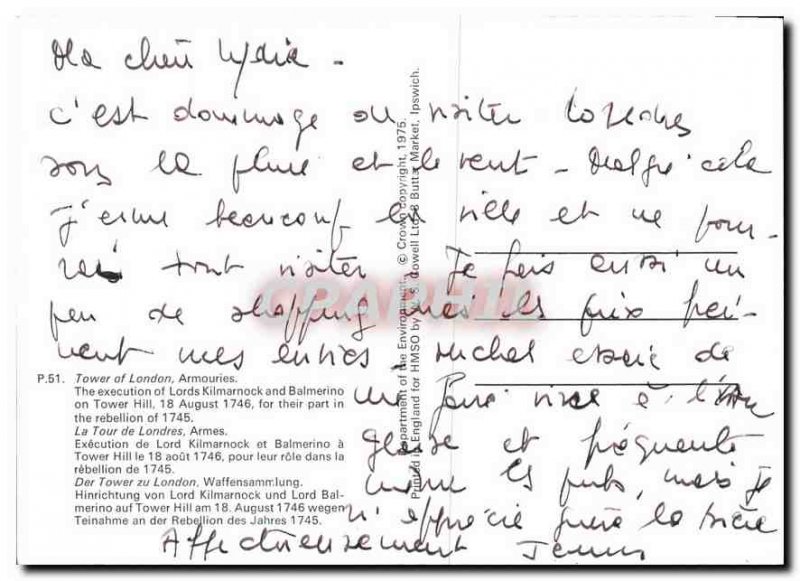 Ma chère Lydia -
c'est dommage de visiter Londres
sous la pluie et le vent - Malgré cela
j'aime beaucoup la ville et ne pour-
rai tout visiter. Je fais aussi un
peu de shopping mais les prix frei-
nent mes envies. Michel essaie de
me faire vivre à l'an
glaise et fréquente
même les pubs, mais je
n'apprécie guère la bière
Affectueusement
P.51. Tower of London, Armouries.
The execution of Lords Kilmarnock and Balmerino
on Tower Hill, 18 August 1746, for their part in
the rebellion of 1745.
La Tour de Londres, Armes.
Exécution de Lord Kilmarnock et Balmerino à
Tower Hill le 18 août 1746, pour leur rôle dans la
rébellion de 1745.
Der Tower zu London, Waffensammlung.
Hinrichtung von Lord Kilmarnock und Lord Bal-
merino auf Tower Hill am 18. August 1746 wegen
Teinahme an der Rebellion des Jahres 1745.
Department of the Environment. © Crown copyright, 1975.
Printed in England for HMSO by W. S. Cowell Ltd, 8 Butter Market, Ipswich.
CPAPHIL